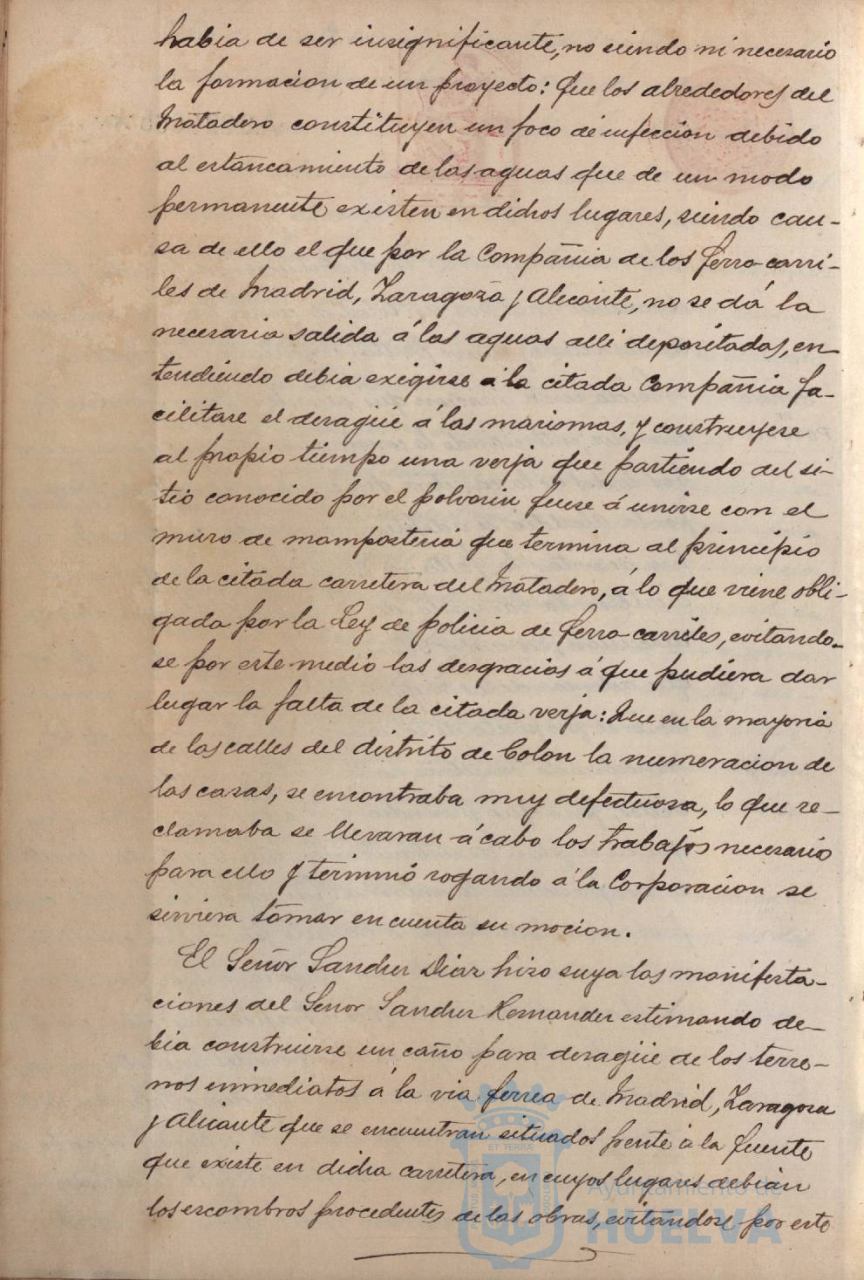 habia de ser insignificante, no siendo ni necesario
la formacion de un proyecto: Que los alrededores del
Matadero constituyen un foco de infeccion debido
al estancamiento de las aguas que de un modo
permanente existen en dichos lugares, siendo cau-
sa de ello el que por la Compañia de los ferro-carri-
les de Madrid, Zaragoza y Alicante, no se dá la
necesaria salida á las aguas alli depositadas, en-
tendiendo debia exigirse á la citada Compañia fa-
cilitase el desagüe á las marismas, y construyese
al propio tiempo una verja que partiendo del si-
tio conocido por el polvorin fuese á unirse con el
muro de mamposteria que termina al principio
de la citada carretera del Matadero, á lo que viene obli-
gada por la Ley de policia de ferro-carriles, evitando-
se por este medio las desgracias á que pudiera dar
lugar la falta de la citada verja: Que en la mayoria
de las calles del distrito de Colon la numeracion de
las casas, se encontraba muy defectuosa, lo que re-
clamaba se llevaran á cabo los trabajos necesario
para ello y terminó rogando á la Corporacion se
sirviera tomar en cuenta su mocion.
El Señor Sanchez Diaz hizo suya las manifesta-
ciones del Señor Sanchez Hernandez estimando de-
bia construirse un caño para desagüe de los terre-
nos inmediatos á la via ferrea de Madrid, Zaragoza
y Alicante que se encuentran situados frente á la fuente
que existe en dicha carretera, en cuyos lugares debian
los escombros procedentes de las obras, evitandose por esto
Ayuntamiento de
HUELVA